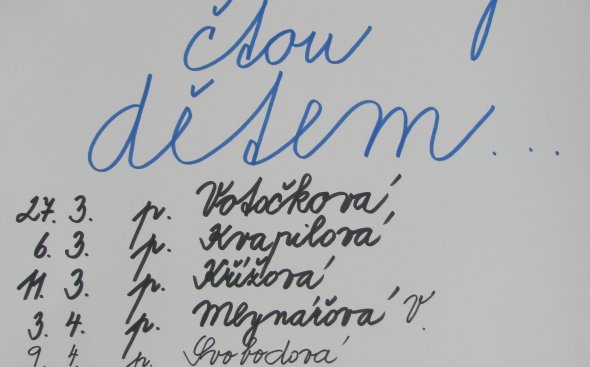 čtou
dětem...
27. 3. p. Votočková
6. 3. p. Kvapilová
11. 3. p. Křížová
3. 4. p. Mlynářová V.
9. 4. p. Svobodová